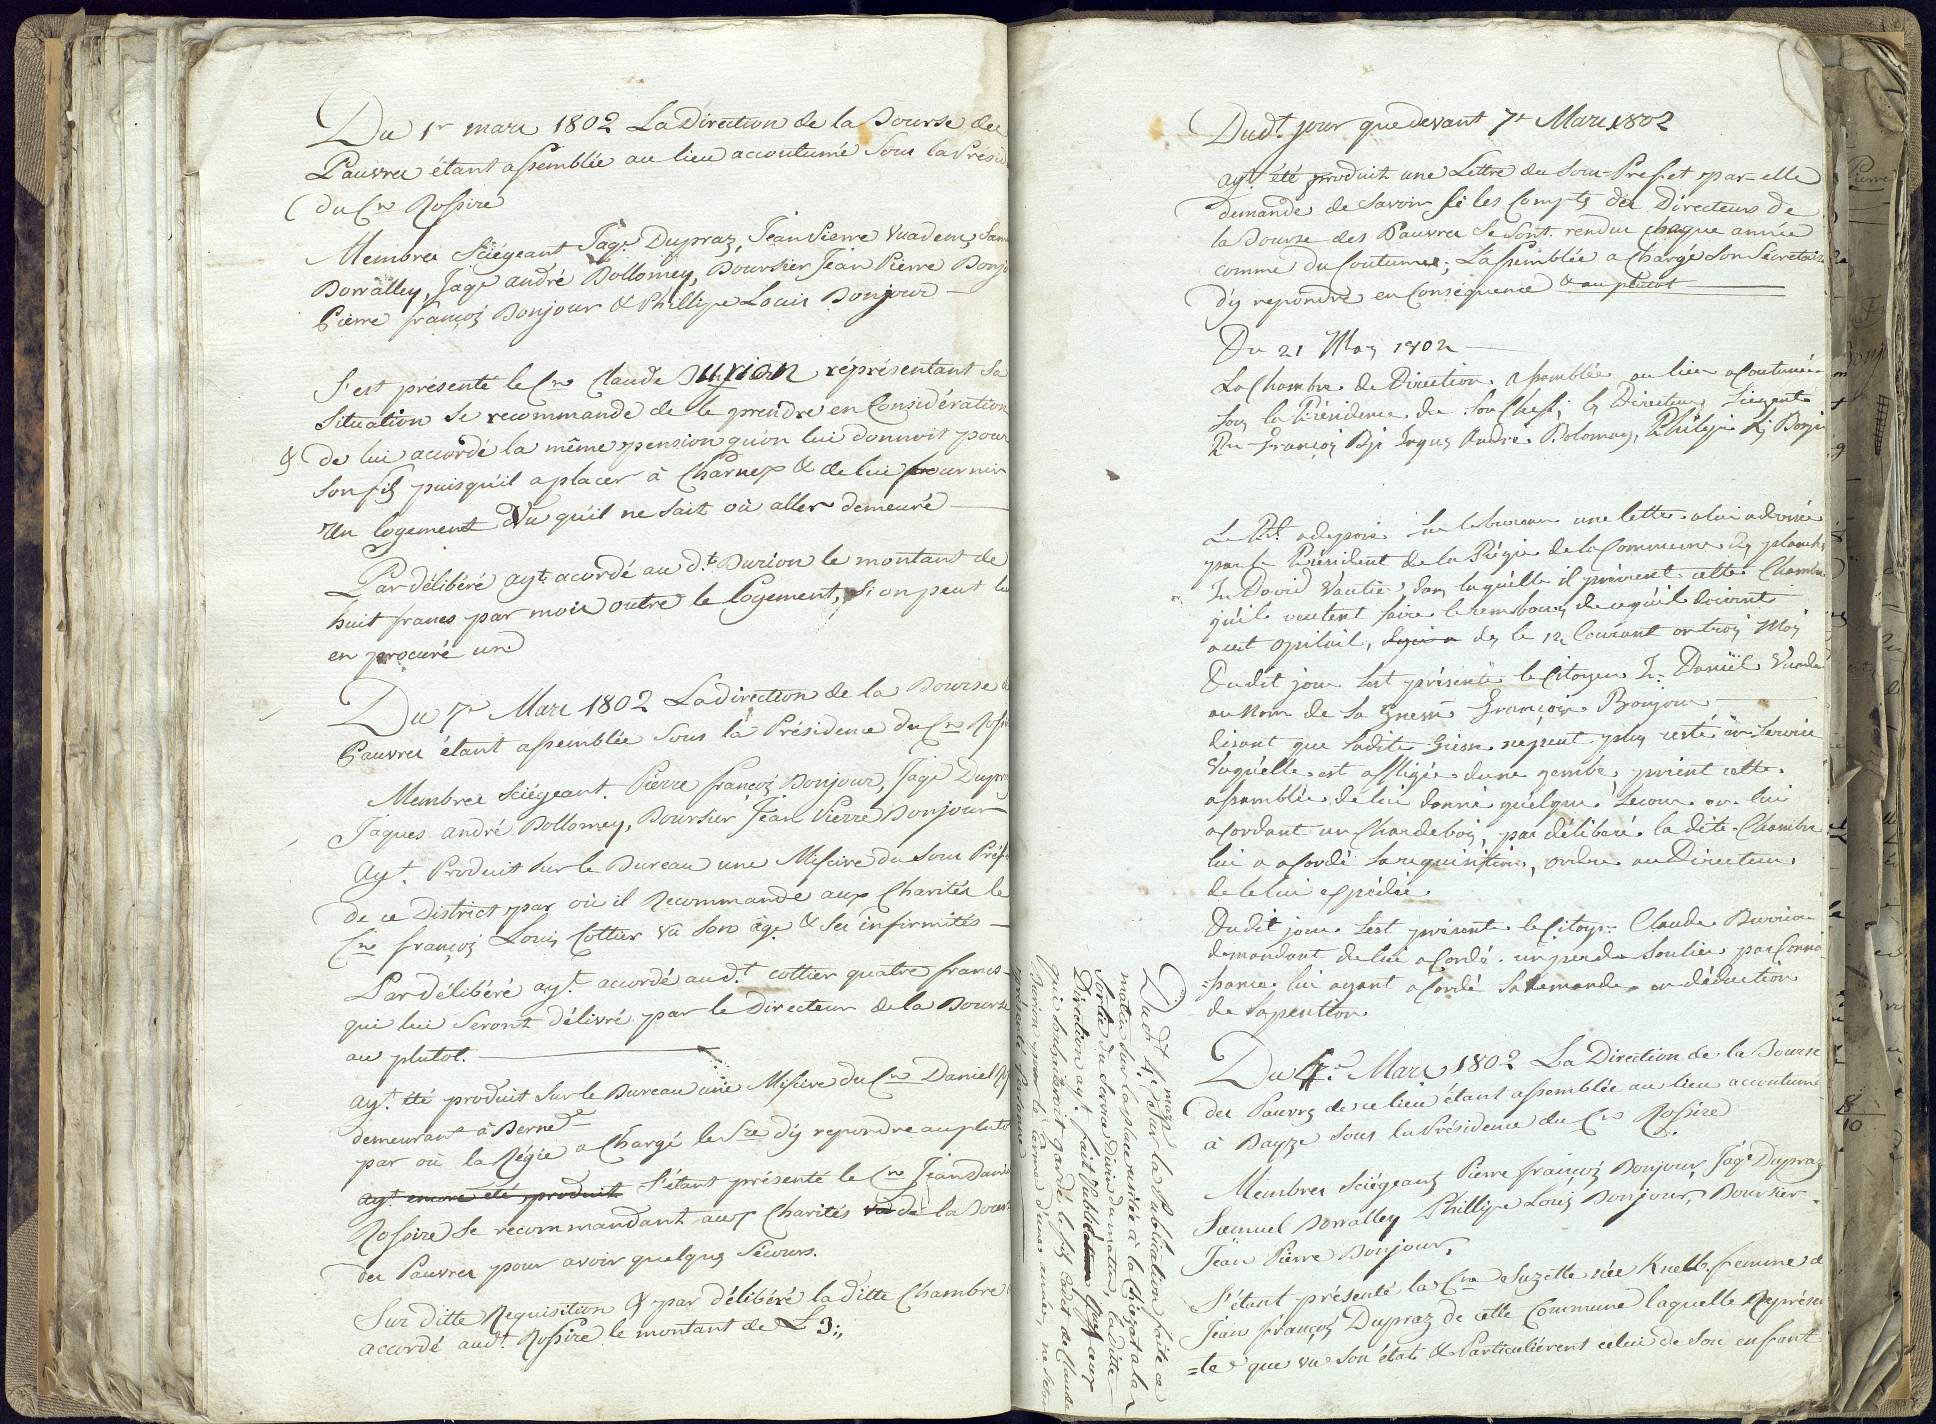 Du 1r mars 1802 La Direction de la Bourse des
Pauvres étant assemblée au lieu accoutumé Sous la Présid
du Cn Rossire
Membres Sciégeant Jaqs Dupraz, Jean Pierre Vuadens, Sam
Dorvalley, Jaqs andré Dollomey, Boursier Jean Pierre Bonjo
Pierre françois Bonjour & Phillipe Louis Bonjour
S'est présenté le Cn Claude Burion réprésentant Sa
Situation se recommande de le prendre en Considération
& de lui accordé la même pension qu'on lui donnoit pour
Son fils puisqu'il a placer à Charnex & de lui fournir
Un logement Vu qu'il ne sait où aller demeuré
Par délibéré ayt acordé au dt Burion le montant de
huit francs par mois outre le Logement, Si on peut lu
en procuré un
Du 7e Mars 1802 La direction de la Bourse d
Pauvres étant assemblée Sous la Présidence du Cn Rossi
Membres Sciégeant. Pierre françois Bonjour, Jaqs Dupra
Jaques andré Dollomey, Boursier Jean Pierre Bonjour
Ayt Produit Sur le Bureau une Missive du Sous Préf
de ce District par où il Recommande aux Charités le
Cn françois Louis Cottier vû Son âge & Ses infirmités
Par délibéré ayt accordé aud.t cottier quatre francs
qui lui Seront délivré par le Directeur de la Bourse
au plutot.
ayt été produit Sur le Bureau une Missive du Cn Daniel
demeurant à Berne
par où la Régie a Chargé le Sre d'y repondre au pluto
ayt encore été produit S'étant présenté le Cn Jean Dani
Rossire Se recommandant aux Charités de la Bours
des Pauvres pour avoir quelques Sécours.
Sur ditte Requisition & par délibéré la ditte Chambre
accordé audt Rossire le montant de L 3:,
Dudt jour que devant 7e Mars 1802
ayt été produit une Lettre du Sous-Prefet par elle
demande de Savoir Si les Compts des Directeurs de
la Bourse des Pauvres se sont rendu chaque année
comme du Coutumes; L'assemblée a Chargé Son Secretaire
d'y repondre en Conséquence & au plutot
Du 21 Mars 1802
La Chambre de Direction assemblée au lieu acoutumée
Sous la Présidence du Sou Chef, les Directeurs Siegents
Pre François Bjr Jaques André Dolomey, Philipe Ls Bonjr
Le Pt a deposée sur le bureau une lettre a lui adressée
par le Président de la Régie de la Commune des planch
Jn David Vautier, Dans laquélle il previent cette Chambre
qu'ils veulent faire le rembours de ce qu'ils doivent
a cet opital, des le 12 Courant en trois Mois
Dudit jour s'est présenté le Citoyen Jn Daniël Vuade
au nom de Sa François Bonjour
disant que ladite ne peut plus resté en Service
Laquélle est affligée d'une jambe, prient cette
assemblée de lui donné quélque Secour en lui
acordant un Char de bois, par délibéré la dite Chambre
lui a acordé Sa requisition, ordre au Directeur
de le lui expédiée.
Dudit jour s'est présenté le Citoyn Claude Burion
demandant de lui acordé un pair de Soulier par Connoi-
=sance lui ayant acordé Sa demande en déduction
de Sa pention.
Du 4e Mars 1802 La Direction de la Bourse
des Pauvrs de ce lieu étant assemblée au lieu accoutumé
à Bayze Sous la Présidence du Cn Rossire
Membres Sciégeans Pierre françois Bonjour, Jaqs Dupraz
Samuel Dorvalley Phillipe Louis Bonjour, Boursier
Jean Pierre Bonjour,
S'étant présenté la Cne Suzette née Knebb, femme d
Jean françois Dupraz de cette Commune laquelle Représen
=te que vu Son état & Particuliérement celui de Son enfant
Dudt 4e mars Sur la Publication faite ce
matin Sur la place usitée à la Chiézaz a la
Sortie du Service divin du matin, La ditte
Direction ayt fait Publié à ceux
qui Souhaiteroit garde le fils Cadet de Claude
Burion pour le terme d'une année, ne Seta
présenté personne